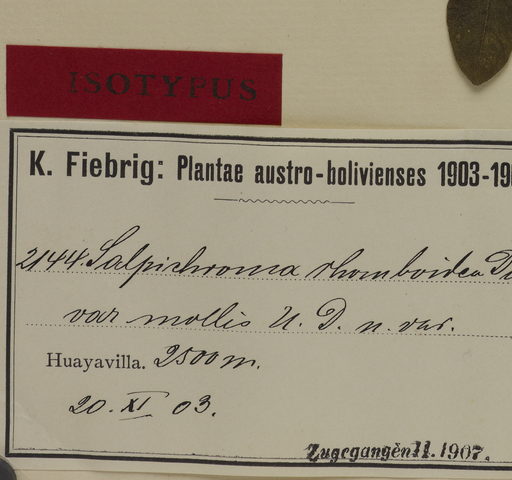 ISOTYPUS
K. Fiebrig: Plantae austro-bolivienses 1903-19
2144 Salpichroma rhomboidea
var mollis U. D. n. var.
Huayavilla. 2500 m.
20. XI 03.
Zugegangen 11. 1907.